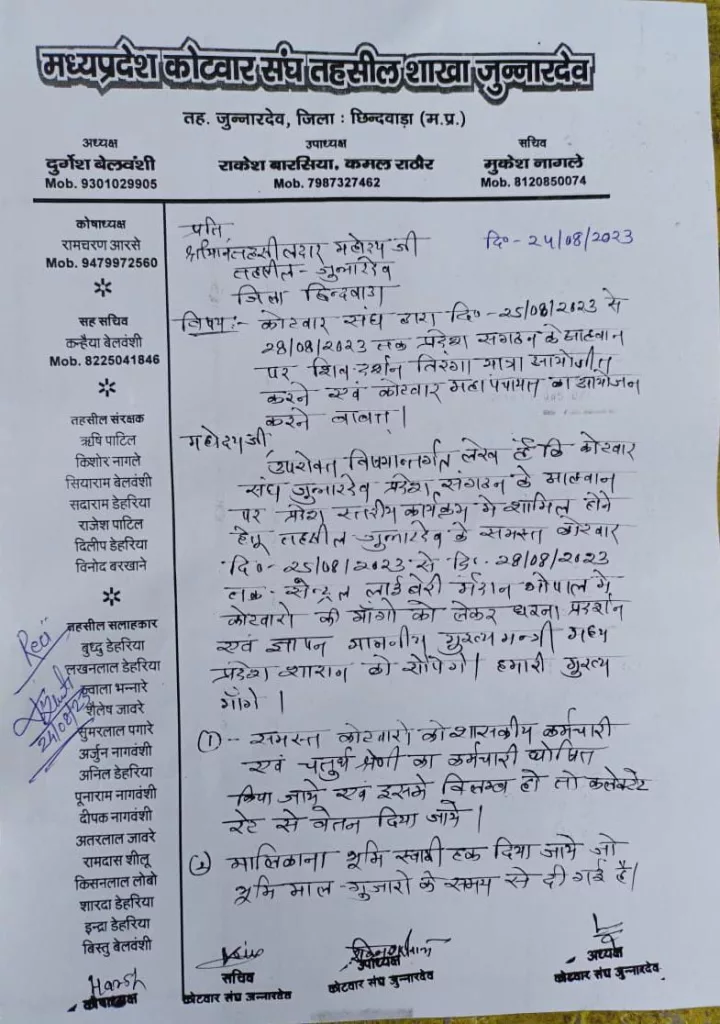 मध्यप्रदेश कोटवार संघ तहसील शाखा जुन्नारदेव
तह. जुन्नारदेव, जिला : छिन्दवाड़ा (म.प्र.)
अध्यक्ष
दुर्गेश बेलवंशी
Mob. 9301029905
उपाध्यक्ष
राकेश बारसिया, कमल राठौर
Mob. 7987327462
सचिव
मुकेश नागले
Mob. 8120850074
कोषाध्यक्ष
रामचरण आरसे
Mob. 9479972560
सह सचिव
कन्हैया बेलवंशी
Mob. 8225041846
तहसील संरक्षक
ऋषि पाटिल
किशोर नागले
सियाराम बेलवंशी
सदाराम डेहरिया
राजेश पाटिल
दिलीप डेहरिया
विनोद बरखाने
तहसील सलाहकार
बुध्दु डेहरिया
लखनलाल डेहरिया
ज्वाला भन्नारे
शैलेष जावरे
सुमरलाल पगारे
अर्जुन नागवंशी
अनिल डेहरिया
पूनाराम नागवंशी
दीपक नागवंशी
अतरलाल जावरे
रामदास शीलू
किसनलाल लोबो
शारदा डेहरिया
इन्द्रा डेहरिया
बिस्तु बेलवंशी
24/08/23
प्रति
श्रीमान तहसीलदार महोदय जी
दि०- 24/08/2023
तहसील- जुन्नारदेव
जिला छिन्दवाडा
विषय:- कोटवार संघ द्वारा दि०- 25/08/2023 से
28/08/2023 तक प्रदेश संगठन के आहवान
पर शिव दर्शन तिरंगा यात्रा आयोजीत
करने एवं कोटवार महापंचायत का आयोजन
करने बाबत्।
महोदय जी
उपरोक्त विषयान्तर्गत लेख है कि कोटवार
संघ जुन्नारदेव प्रदेश संगठन के आहवान
पर प्रदेश स्तरीय कार्यक्रम मे शामिल होने
हेतू तहसील जुन्नारदेव के समस्त कोटवार
दि०- 25/08/2023 से दि०- 28/08/2023
तक- सेन्ट्रल लाईबेरी मैदान भोपाल मे,
कोटवारो की माँगो को लेकर धरना प्रदर्शन
एवं ज्ञापन माननीय मुख्य मन्त्री मध्य
प्रदेश शासन को सौपेंगे। हमारी मुख्य
माँगे।
(1) - समस्त कोटवारो को शासकीय कर्मचारी
एवं चतुर्थ श्रेणी का कर्मचारी घोषित
किया जाये एवं इसमे विलम्ब हो तो कलेक्टर
रेट से वेतन दिया जाये।
(2) मालिकाना भूमि स्वामी हक दिया जाये जो
भूमि माल-गुजारो के समय से दी गई है।
Harsh
कोषाध्यक्ष
सचिव
कोटवार संघ जुन्नारदेव
उपाध्यक्ष
कोटवार संघ जुन्नारदेव
अध्यक्ष
कोटवार संघ जुन्नारदेव